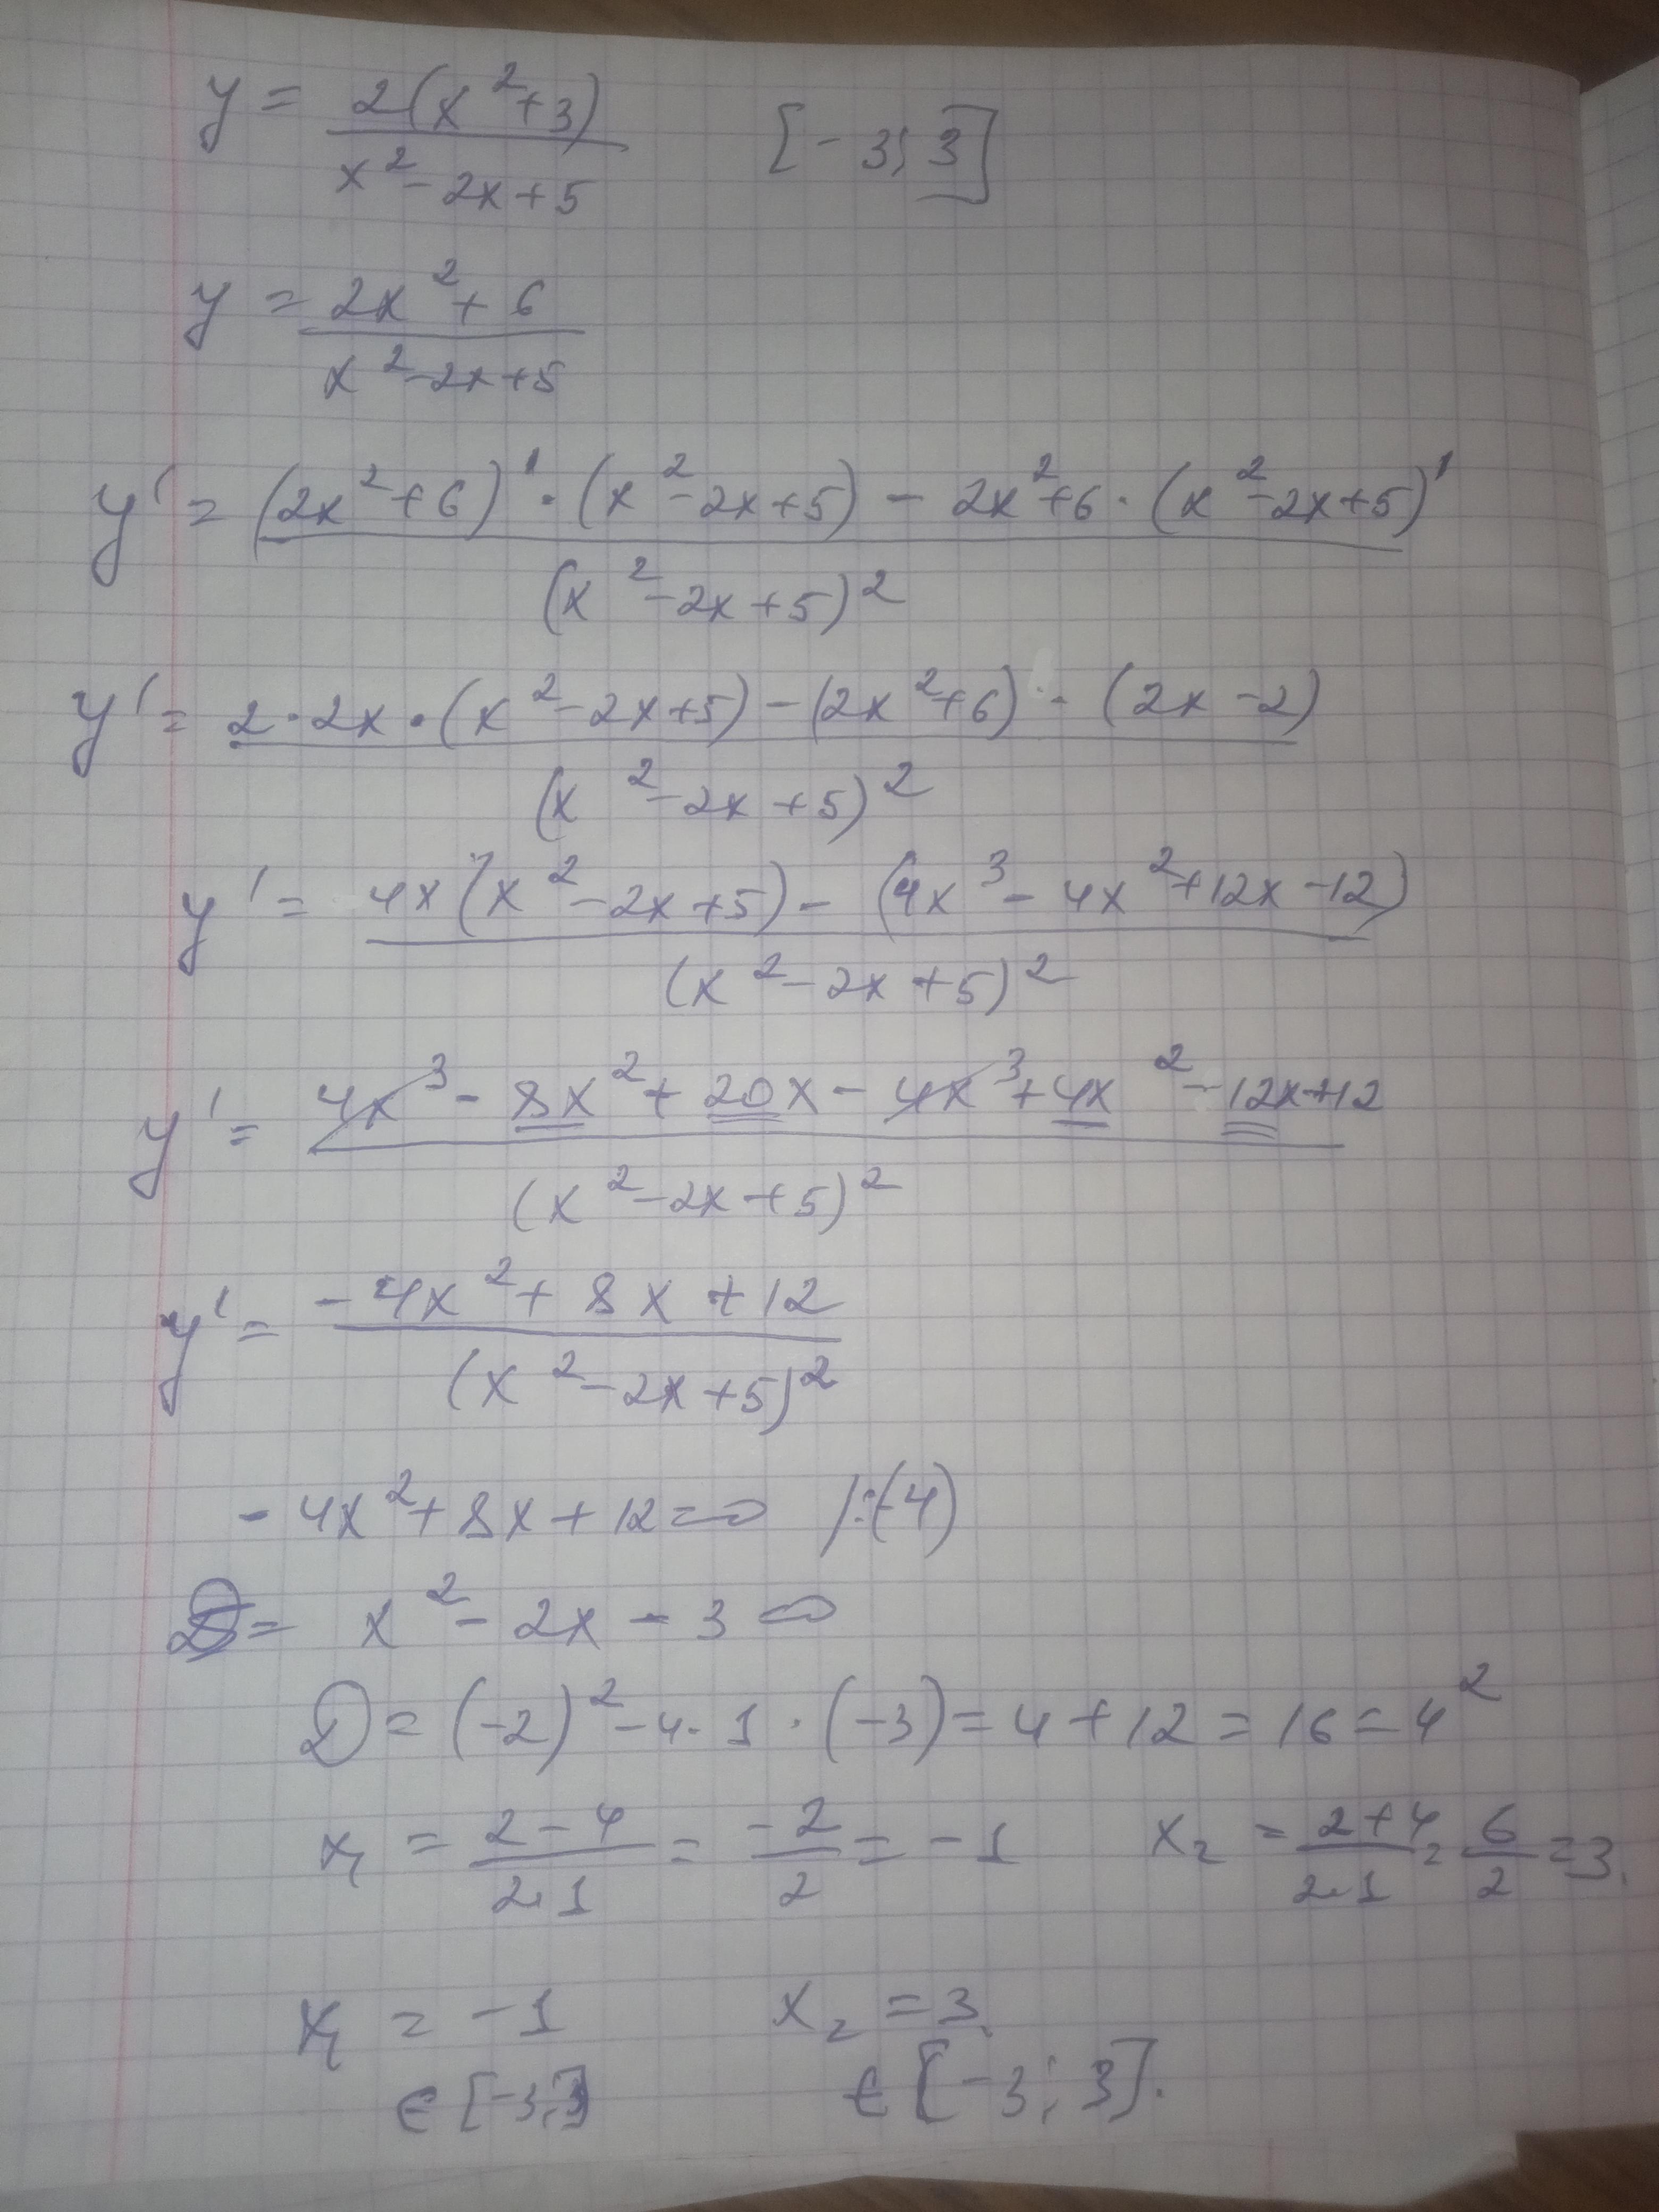 y = 2(x²+3) / x²-2x+5 [-3; 3]
y = 2x²+6 / x²-2x+5
y' = (2x²+6)' · (x²-2x+5) - 2x²+6 · (x²-2x+5)' / (x²-2x+5)²
y' = 2·2x·(x²-2x+5) - (2x²+6) · (2x-2) / (x²-2x+5)²
y' = 4x(x²-2x+5) - (4x³-4x²+12x-12) / (x²-2x+5)²
y' = 4x³-8x²+20x-4x³+4x²-12x+12 / (x²-2x+5)²
y' = -4x²+8x+12 / (x²-2x+5)²
-4x²+8x+12=0 /:(-4)
x²-2x-3=0
D=(-2)²-4·1·(-3)=4+12=16=4²
x₁ = 2-4 / 2·1 = -2 / 2 = -1 x₂ = 2+4 / 2·1 = 6 / 2 = 3.
x₁ = -1 x₂ = 3
∈ [-3;3] ∈ [-3; 3].